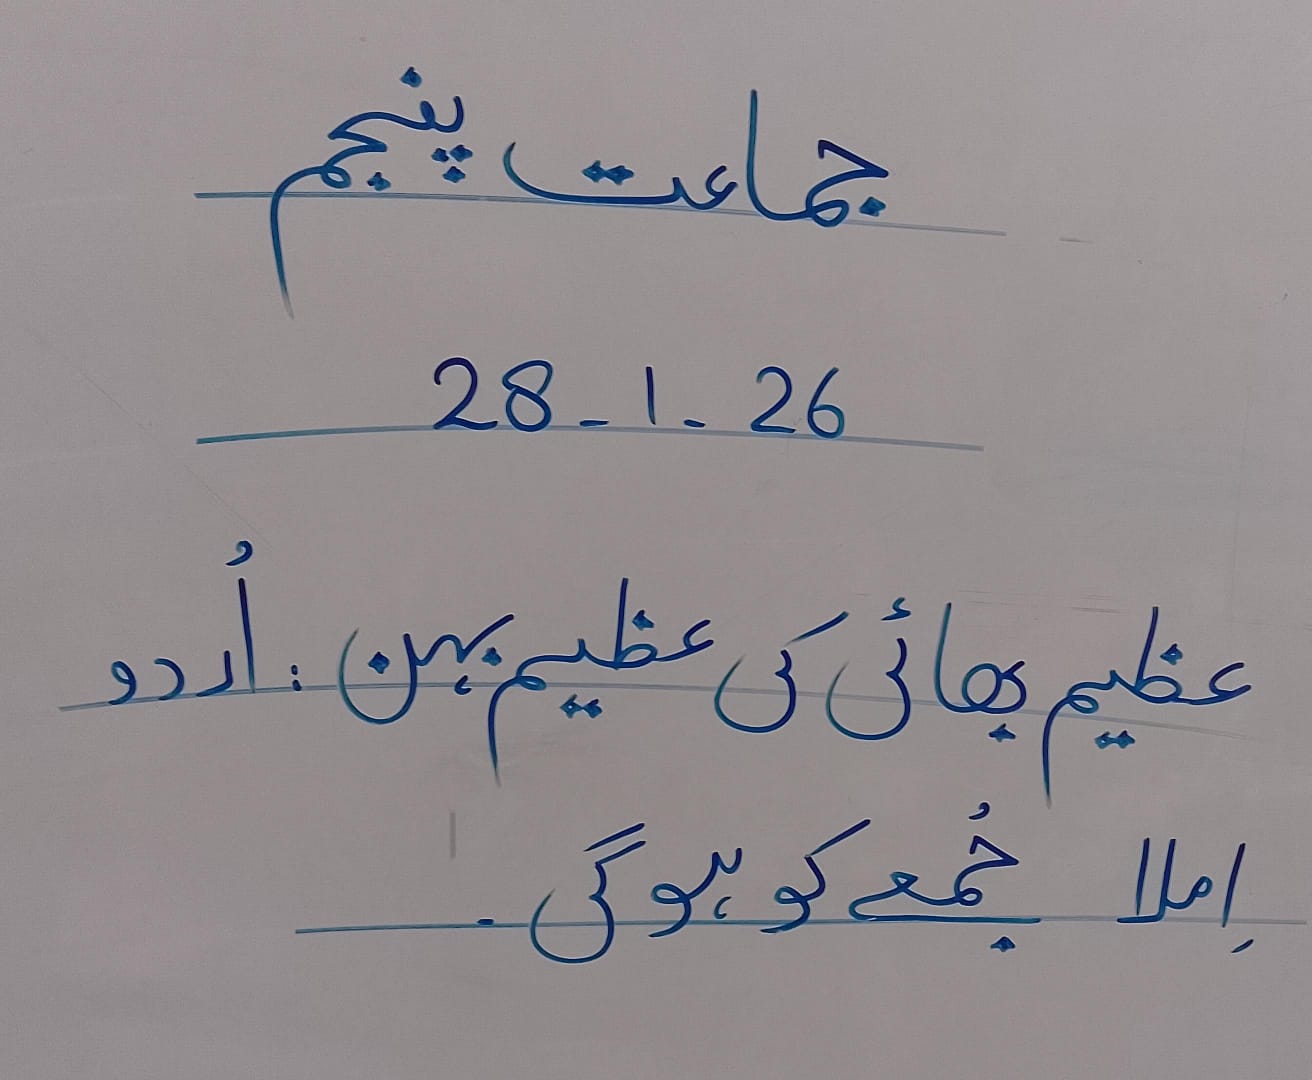 جماعت پنجم
28-1-26
عظیم بھائی کی عظیم بہن : اُردو
اِملا جُمعے کو ہوگی۔